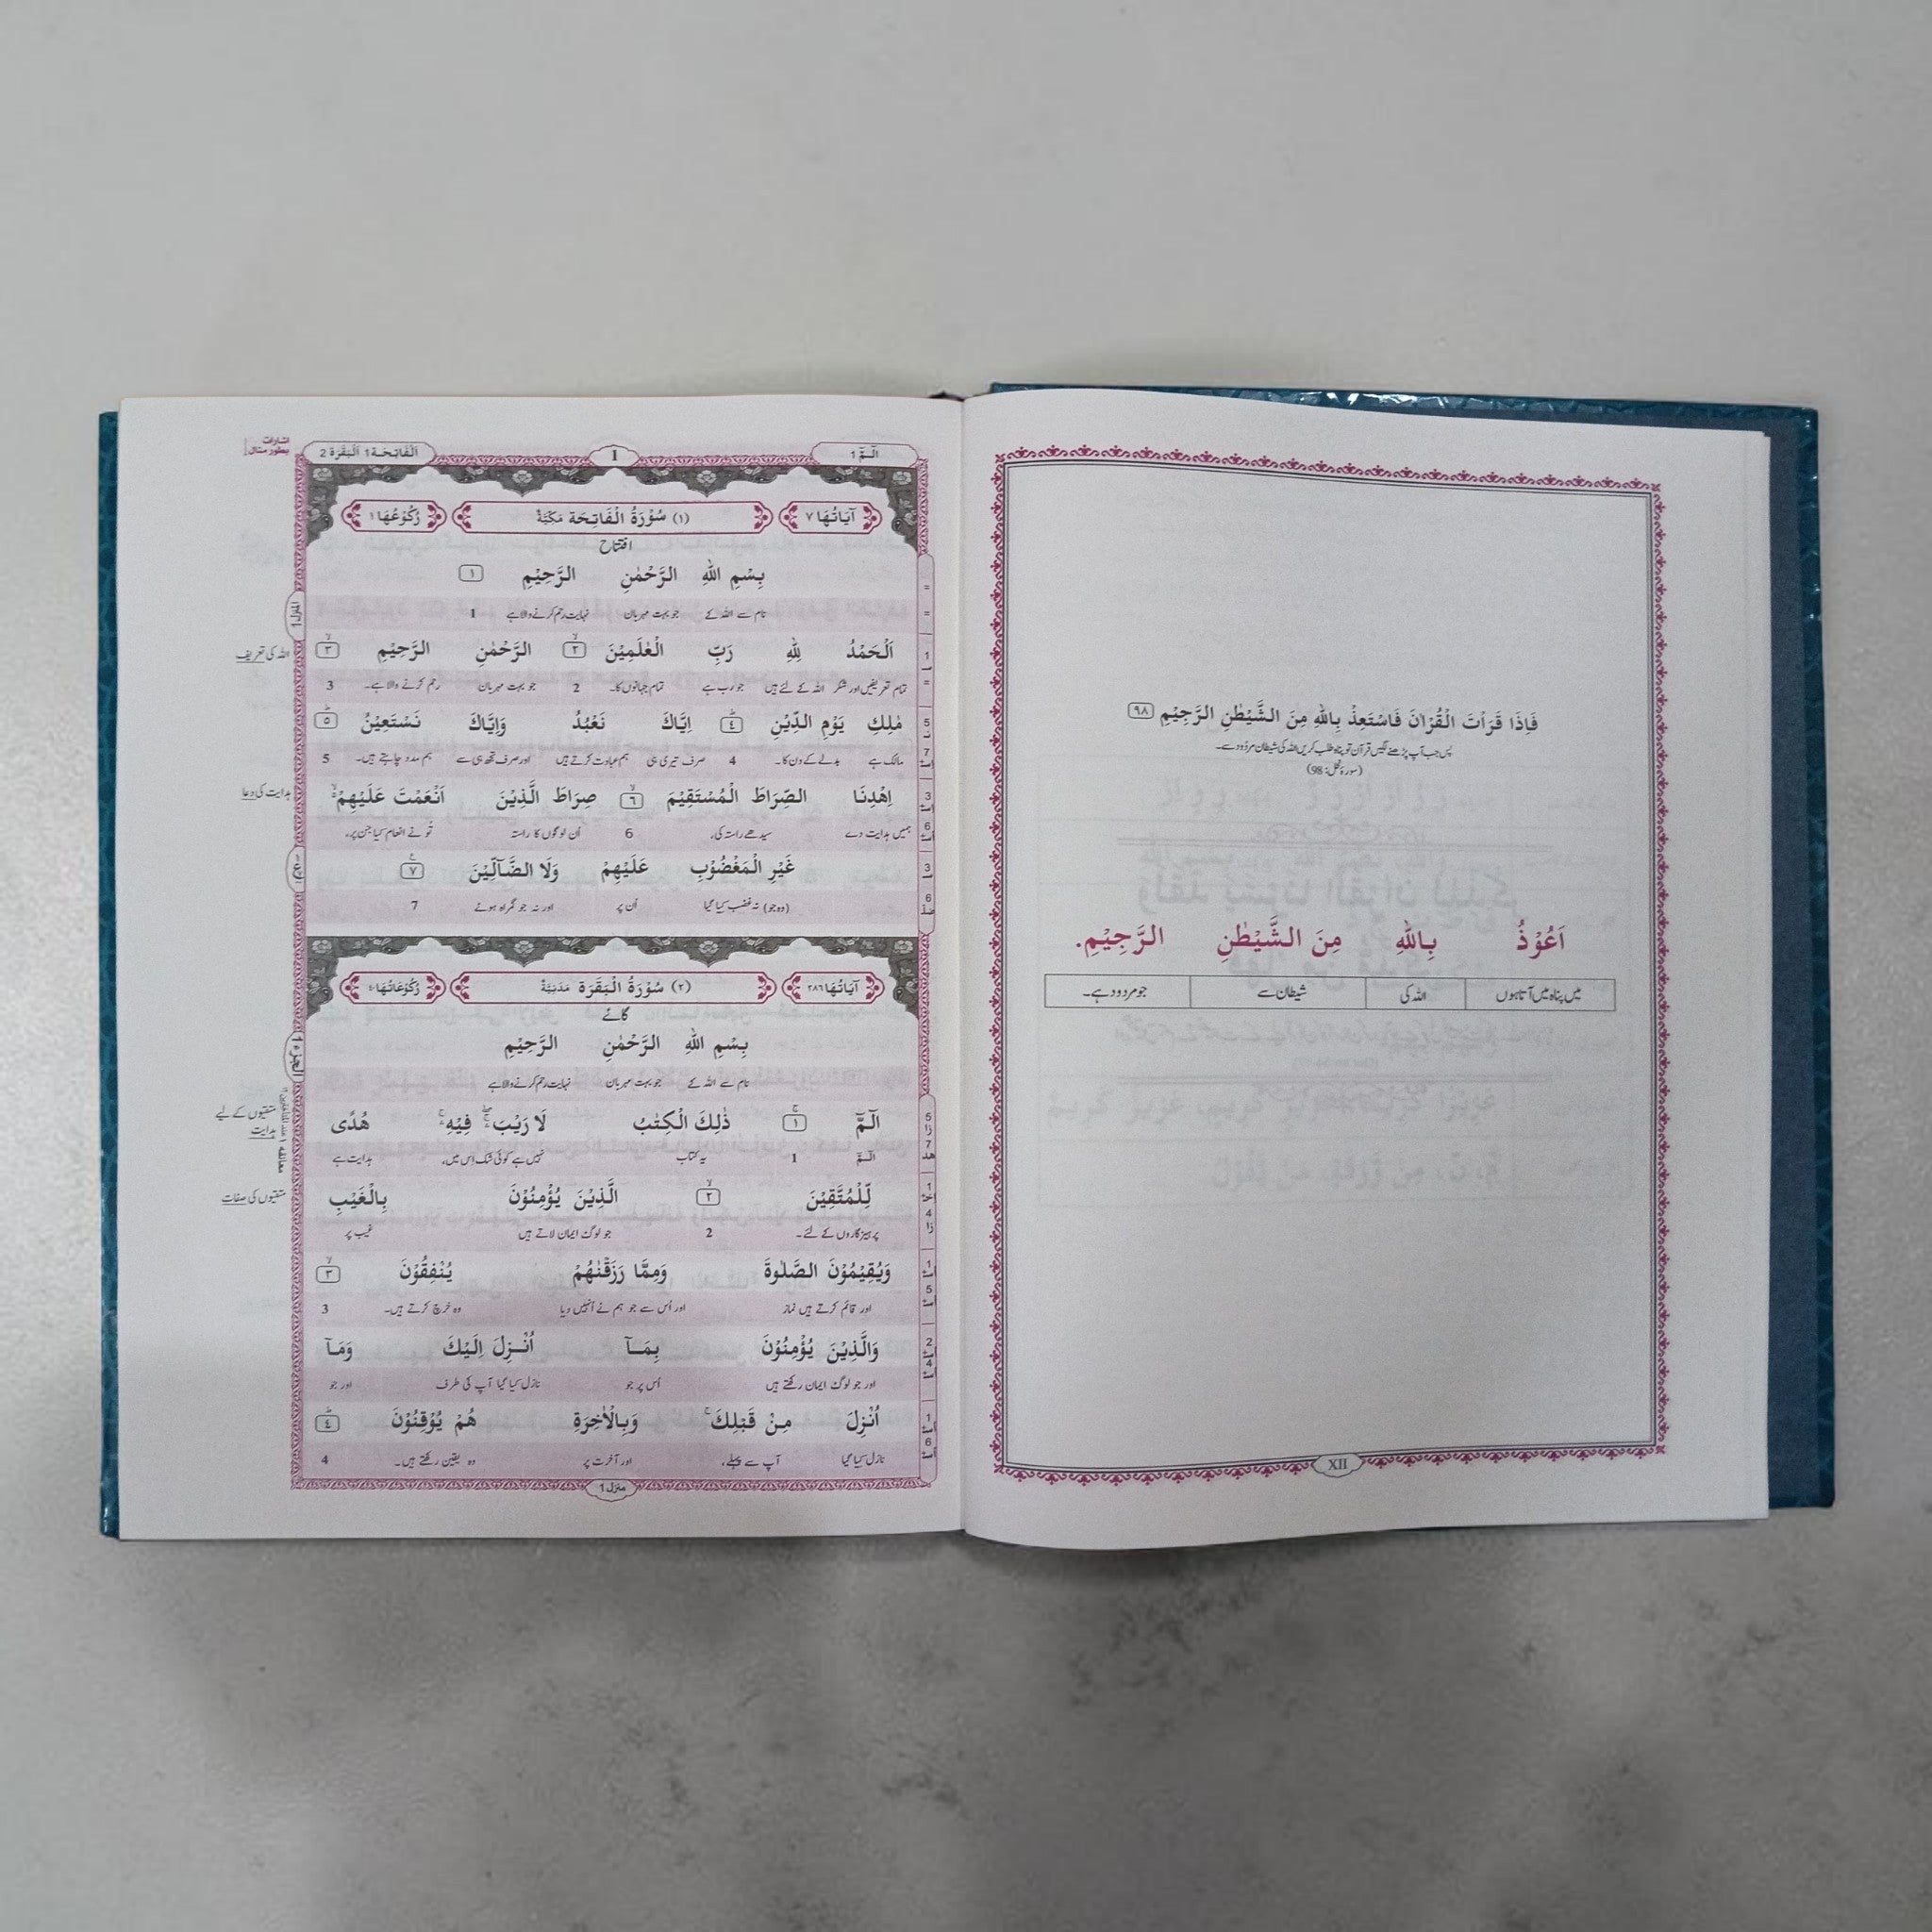 فَاِذَا قَرَاْتَ الْقُرْاٰنَ فَاسْتَعِذْ بِاللّٰهِ مِنَ الشَّيْطٰنِ الرَّجِيْمِ ٩٨
پس جب آپ پڑھنے لگیں قرآن تو پناہ طلب کریں اللہ کی شیطان مردُود سے۔
(سورۂ نحل: 98)
اَعُوْذُ بِاللّٰهِ مِنَ الشَّيْطٰنِ الرَّجِيْمِ.
میں پناہ میں آتا ہوں اللہ کی شیطان سے جو مردود ہے۔
XII
الٓـمّٓ 1 1 اَلْفَاتِحَة 1 اَلْبَقَرَة 2
اشارات
بطور مثال
اٰيَاتُهَا ٧ (١) سُوْرَةُ الْفَاتِحَة مَكِّيَّةٌ رُكُوْعُهَا ١
افتتاح
بِسْمِ اللّٰهِ الرَّحْمٰنِ الرَّحِيْمِ ١
نام سے اللہ کے جو بہت مہربان نہایت رحم کرنے والا ہے 1
اَلْحَمْدُ لِلّٰهِ رَبِّ الْعٰلَمِيْنَ ٢ الرَّحْمٰنِ الرَّحِيْمِ ٣
اللہ کی تعریف
تمام تعریفیں اور شکر اللہ کے لئے ہیں جو رب ہے تمام جہانوں کا۔ 2 جو بہت مہربان رحم کرنے والا ہے۔ 3
مٰلِكِ يَوْمِ الدِّيْنِ ٤ اِيَّاكَ نَعْبُدُ وَاِيَّاكَ نَسْتَعِيْنُ ٥
مالک ہے بدلے کے دن کا۔ 4 صرف تیری ہی ہم عبادت کرتے ہیں اور صرف تجھ ہی سے ہم مدد چاہتے ہیں۔ 5
اِهْدِنَا الصِّرَاطَ الْمُسْتَقِيْمَ ٦ صِرَاطَ الَّذِيْنَ اَنْعَمْتَ عَلَيْهِمْ
ہدایت کی دعا
ہمیں ہدایت دے سیدھے راستہ کی، 6 اُن لوگوں کا راستہ تُو نے انعام کیا جن پر،
غَيْرِ الْمَغْضُوْبِ عَلَيْهِمْ وَلَا الضَّآلِّيْنَ ٧
(وہ جو) نہ غضب کیا گیا اُن پر اور نہ جو گمراہ ہوئے 7
اٰيَاتُهَا ٢٨٦ (٢) سُوْرَةُ الْبَقَرَة مَدَنِيَّةٌ رُكُوْعَاتُهَا ٤٠
گائے
بِسْمِ اللّٰهِ الرَّحْمٰنِ الرَّحِيْمِ
نام سے اللہ کے جو بہت مہربان نہایت رحم کرنے والا ہے
الٓـمّٓ ١ ذٰلِكَ الْكِتٰبُ لَا رَيْبَ فِيْهِ هُدًى
متقیوں کے لیے
ہدایت
الٓـمّٓ 1 یہ کتاب نہیں ہے کوئی شک اِس میں، ہدایت ہے
لِّلْمُتَّقِيْنَ ٢ الَّذِيْنَ يُؤْمِنُوْنَ بِالْغَيْبِ
متقیوں کی صفات
پرہیزگاروں کے لئے۔ 2 جو لوگ ایمان لاتے ہیں غیب پر
وَيُقِيْمُوْنَ الصَّلٰوةَ وَمِمَّا رَزَقْنٰهُمْ يُنْفِقُوْنَ ٣
اور قائم کرتے ہیں نماز اور اُس سے جو ہم نے اُنہیں دیا وہ خرچ کرتے ہیں۔ 3
وَالَّذِيْنَ يُؤْمِنُوْنَ بِمَآ اُنْزِلَ اِلَيْكَ وَمَآ
اور جو لوگ ایمان رکھتے ہیں اُس پر جو نازل کیا گیا آپ کی طرف اور جو
اُنْزِلَ مِنْ قَبْلِكَ وَبِالْاٰخِرَةِ هُمْ يُوْقِنُوْنَ ٤
نازل کیا گیا آپ سے پہلے، اور آخرت پر وہ یقین رکھتے ہیں۔ 4
منزل 1